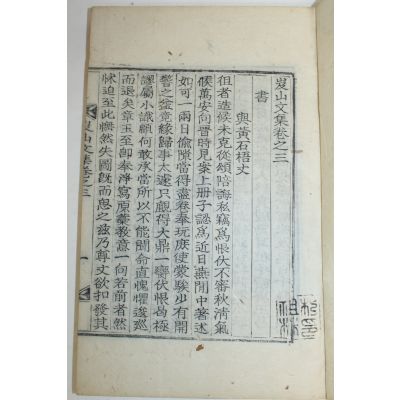 岌山文集卷之三
書
與黃石梧丈
徂者造候未克從頌陪誨私竊爲恨伏不審秋淸氣
候萬安向晋時見案上册子認爲近日燕閒中著述
如可一兩日偸隙當得盡卷奉玩庶使蒙騃少有開
警之益竟緣歸事太遽只覷得大鼎一臠伏恨曷極
謬屬小識顧何敢承當所以不能聞命直愧懼逡巡
而退矣章玉至卽奉淨寫原藁敎意一向若前者然
怵迫至此憮然失圖旣而思之玆乃尊丈欲扣發其
岌山文集卷之三